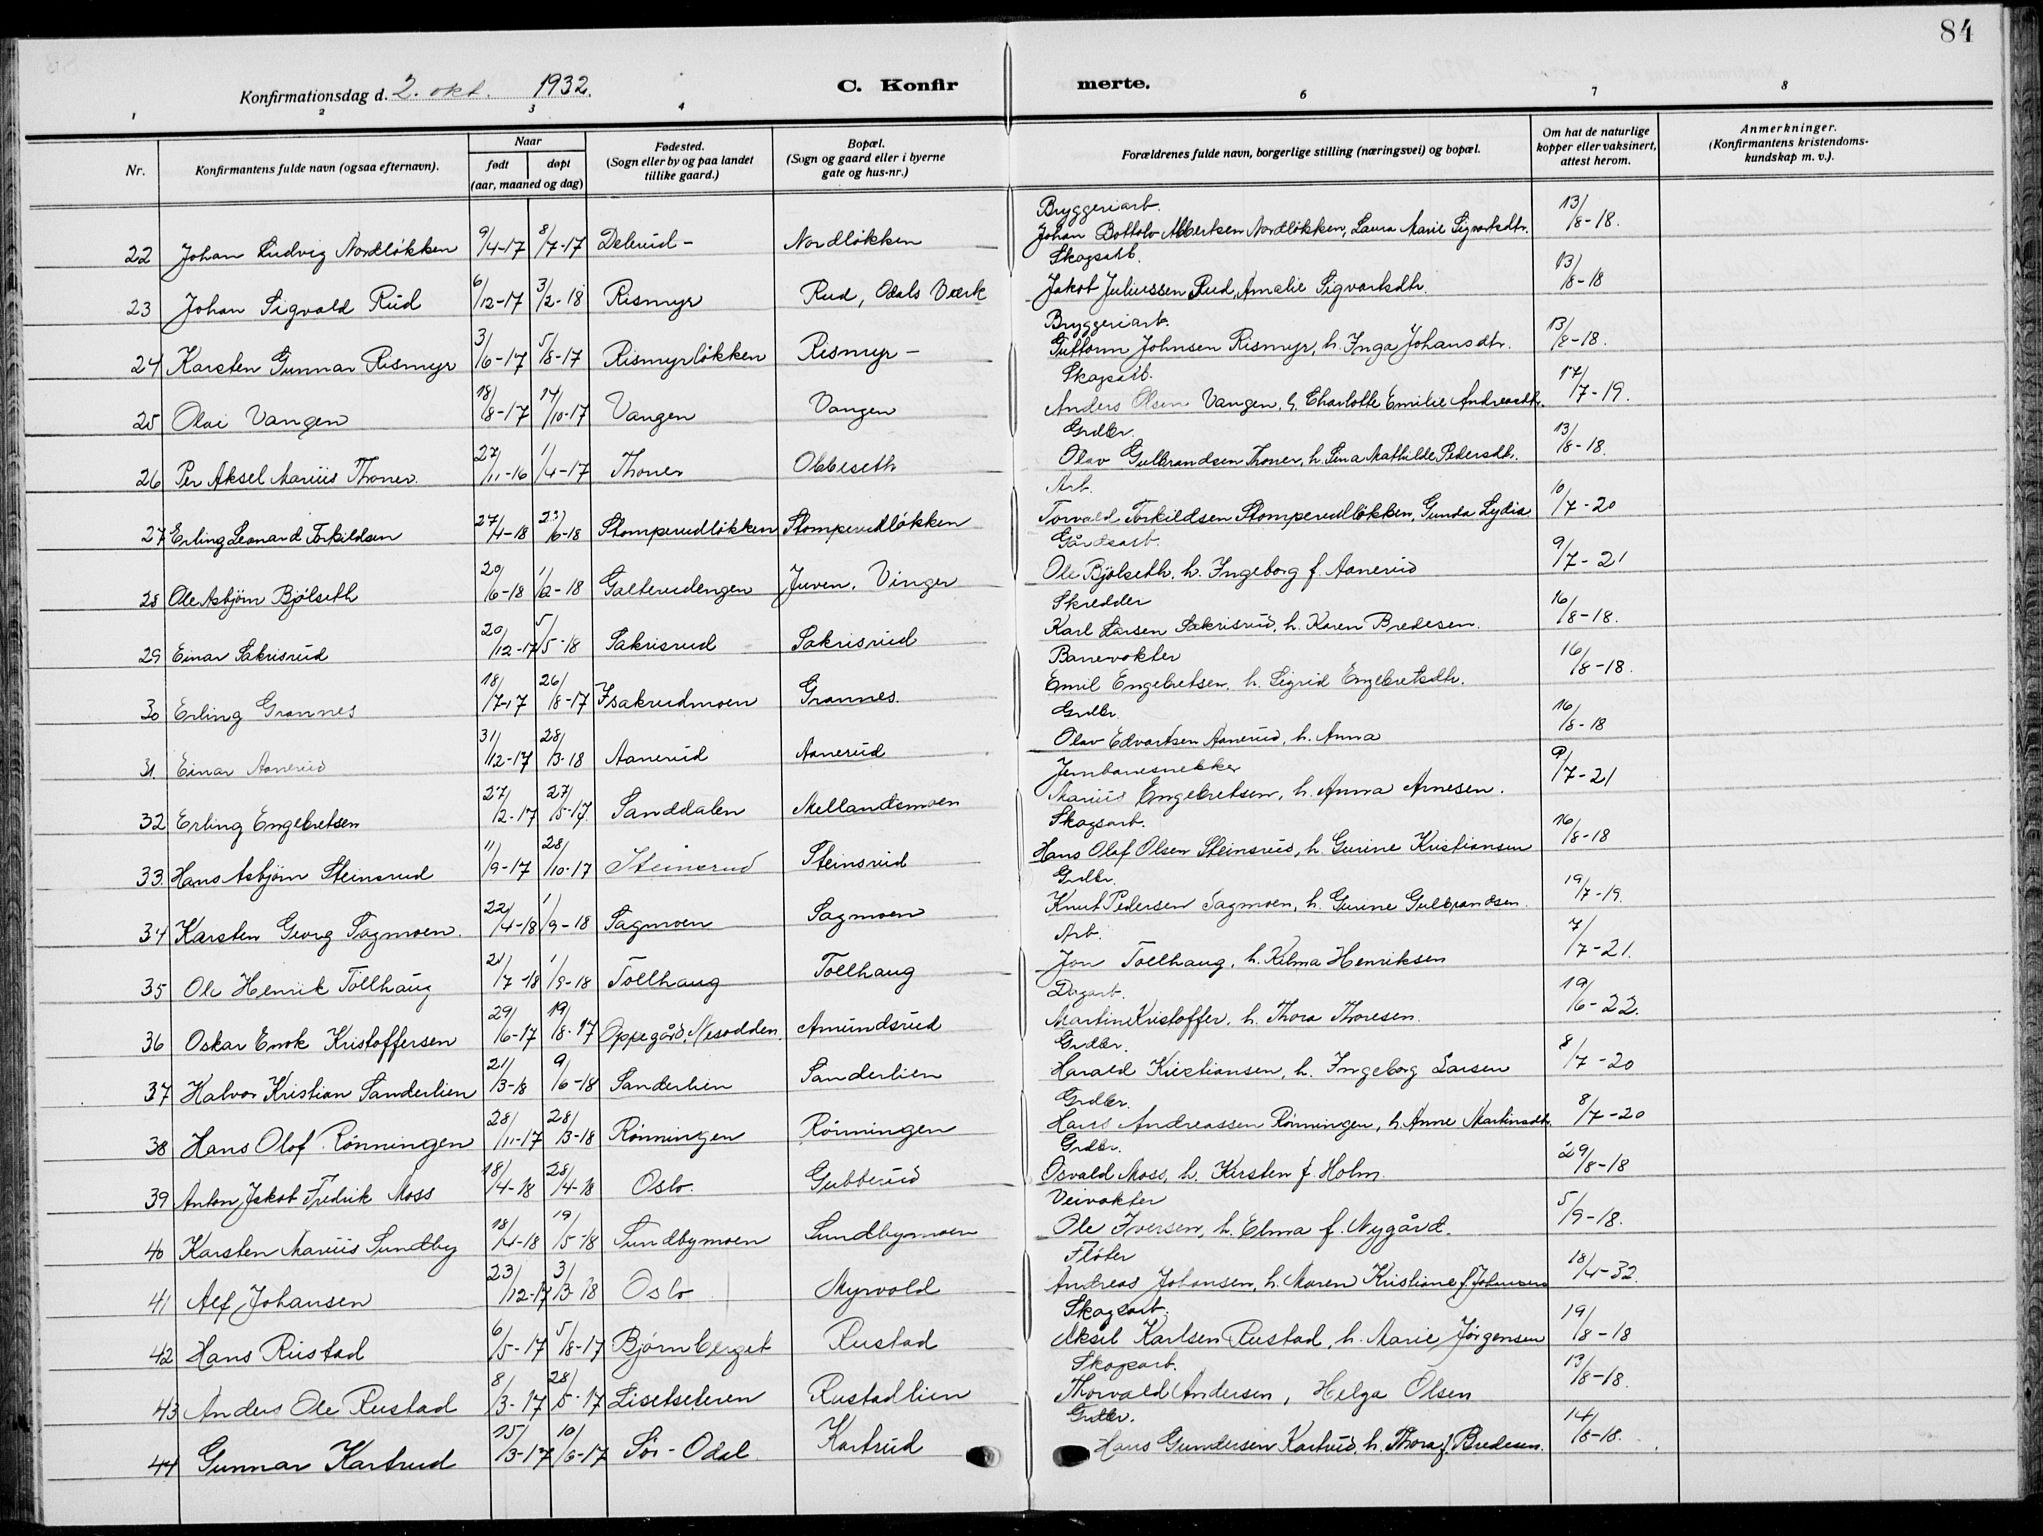 84
Konfirmationsdag d. 2. okt. 1932.
C. Konfirmerte.
1 2 3 4 6 7 8
Nr.
Konfirmantens fulde navn (ogsaa efternavn).
Naar
født
døpt
(aar, maaned og dag)
Fødested.
(Sogn eller by og paa landet
tillike gaard.)
Bopæl.
(Sogn og gaard eller i byerne
gate og hus-nr.)
Forældrenes fulde navn, borgerlige stilling (næringsvei) og bopæl.
Om hat de naturlige
kopper eller vaksinert,
attest herom.
Anmerkninger.
(Konfirmantens kristendoms-
kundskap m. v.).
Bryggeriarb.
22 Johan Ludvig Nordløkken 9/4-17 8/7-17 Delerud - Nordløkken Johan Bottolv Albertsen Nordløkken, Laura Marie Sigvartsdtr. 13/8-18.
Skogsarb.
23 Johan Sigvald Rud 6/12-17 3/2-18 Rismyr Rud, Odals Værk Jakob Juliussen Rud, Amalie Sigvartsdtr. 13/8-18
Bryggeriarb.
24 Karsten Gunnar Rismyr 3/6-17 5/8-17 Rismyrløkken Rismyr - Guttorm Johnsen Rismyr, h. Inga Johansdtr. 13/8-18.
Skogsarb.
25 Olai Vangen 18/8-17 14/10-17 Vangen Vangen Anders Olsen Vangen, h. Charlotte Emilie Andreasdtr. 17/7-19.
Grdbr.
26 Per Aksel Marius Thoner. 27/11-16 1/4-17 Thoner Obbeseth Olav Gulbrandsen Thoner, h. Lina Mathilde Pedersdtr. 13/8-18.
Arb.
27 Erling Leonard Torkildsen 27/4-18 23/6-18 Stomperudløkken Stomperudløkken Torvald Torkildsen Stomperudløkken, Gunda Lydia 10/7-20
Gårdsarb.
28 Ole Asbjørn Bjølseth 20/6-18 1/2-18 Galterudengen Juven, Vinger Ole Bjølseth, h. Ingeborg f. Aanerud 9/7-21
Skredder
29 Einar Sakrisrud 20/12-17 5/5-18 Sakrisrud Sakrisrud Karl Larsen Sakrisrud, h. Karen Bredesen. 16/8-18.
Banevokter
30 Erling Grannes 18/7-17 26/8-17 Isakrudmoen Grannes. Emil Engebretsen, h. Sigrid Engebretsdtr. 16/8-18.
Grdbr.
31 Einar Aanerud 31/12-17 28/3-18 Aanerud Aanerud Olav Edvartsen Aanerud, h. Anna 16/8-18
Jernbanesnekker
32 Erling Engebretsen 27/2-17 27/5-17. Sanddalen Mellandsmoen Marius Engebretsen, h. Anna Arnesen. 9/7-21
Skogsarb.
33. Hans Asbjørn Steinsrud 11/9-17 28/10-17 Steinsrud Steinsrud Hans Olaf Olsen Steinsrud, h. Gurine Kristiansen 16/8-18
Grdbr.
34 Karsten Georg Sagmoen. 22/4-18 1/9-18 Sagmoen Sagmoen Knut Pedersen Sagmoen, h. Gurine Gulbrandsen. 19/7-19.
Arb.
35 Ole Henrik Tollhaug 21/7-18 1/9-18 Tollhaug Tollhaug Jon Tollhaug, h. Hilma Henriksen 7/7-21.
Dagarb.
36 Oskar Enok Kristoffersen 29/6-17 19/8-17 Oppegård, Nesodden. Amundsrud Martin Kristoffer. h. Thora Thoresen. 19/6-22.
Grdbr.
37 Halvor Kristian Sanderlien 21/3-18 9/6-18 Sanderlien Sanderlien Harald Kristiansen, h. Ingeborg Larsen 8/7-20
Grdbr.
38 Hans Olof Rønningen 28/11-17 28/3-18 Rønningen Rønningen Hans Andreassen Rønningen, h. Anne Martinsdtr. 8/7-20
Grdbr.
39 Anton Jakob Fredrik Moss 18/4-18 28/4-18 Oslo. Gubberud Osvald Moss, h. Kirsten f. Holm 29/8-18
Veivokter
40 Karsten Marius Sundby 18/4-18 19/5-18 Sundbymoen Sundbymoen Ole Iversen, h. Elma f. Nygård. 5/9-18.
Fløter
41 Alf Johansen 23/12-17 3/3-18 Oslo Myrvold Andreas Johansen, h. Maren Kristiane f. Johansen 18/4-32.
Skogsarb.
42 Hans Rustad 6/5-17 5/8-17 Bjørnberget Rustad Aksel Karlsen Rustad, h. Marie Jørgensen 19/8-18
Skogsarb.
43 Anders Ole Rustad 8/3-17 28/5-17 Lisetseteren Rustadlien Thorvald Andersen, Helga Olsen 13/8-18.
Grdbr.
44 Gunnar Kartrud 15/3-17 10/6-17 Sør-Odal Kartrud Hans Gundersen Kartrud, h. Thora f. Bredesen. 14/8-18.